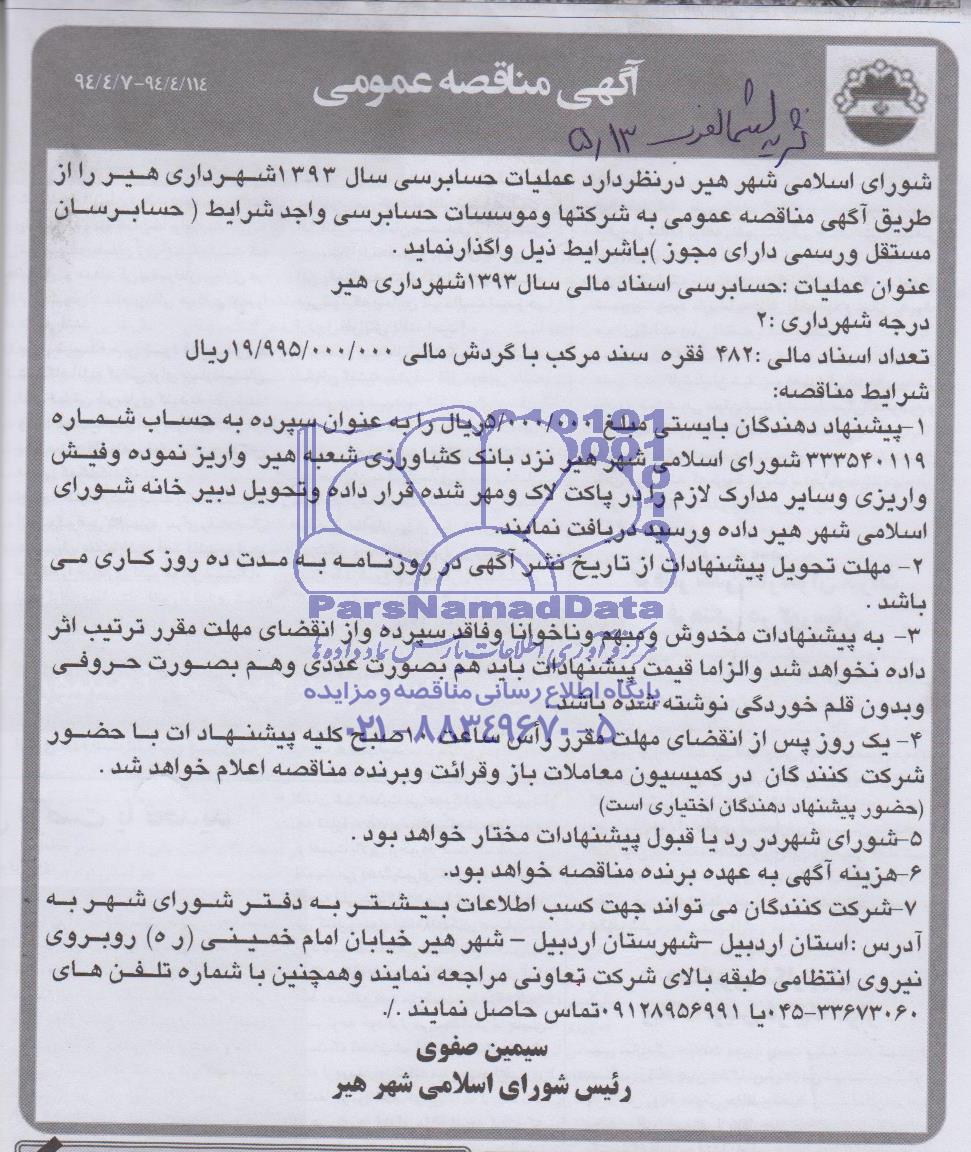 آگهی مناقصه عمومی
۹٤/٤/۷-۹٤/٤/۱۱٤
۵/۱۳
شورای اسلامی شهر هیر درنظردارد عملیات حسابرسی سال ۱۳۹۳شهرداری هیر را از
طریق آگهی مناقصه عمومی به شرکتها وموسسات حسابرسی واجد شرایط ( حسابرسان
مستقل ورسمی دارای مجوز )باشرایط ذیل واگذارنماید .
عنوان عملیات :حسابرسی اسناد مالی سال۱۳۹۳شهرداری هیر
درجه شهرداری :۲
تعداد اسناد مالی :۴۸۲ فقره سند مرکب با گردش مالی ۱۹/۹۹۵/۰۰۰/۰۰۰ریال
شرایط مناقصه:
۱-پیشنهاد دهندگان بایستی مبلغ ۵/۰۰۰/۰۰۰ریال را به عنوان سپرده به حساب شماره
۳۳۳۵۴۰۱۱۹ شورای اسلامی شهر هیر نزد بانک کشاورزی شعبه هیر واریز نموده وفیش
واریزی وسایر مدارک لازم را در پاکت لاک ومهر شده قرار داده وتحویل دبیر خانه شورای
اسلامی شهر هیر داده ورسید دریافت نمایند.
۲- مهلت تحویل پیشنهادات از تاریخ نشر آگهی در روزنامه به مدت ده روز کاری می
باشد .
۳- به پیشنهادات مخدوش ومبهم وناخوانا وفاقد سپرده واز انقضای مهلت مقرر ترتیب اثر
داده نخواهد شد والزاما قیمت پیشنهادات باید هم بصورت عددی وهم بصورت حروفی
وبدون قلم خوردگی نوشته شده باشد .
۴- یک روز پس از انقضای مهلت مقرر رأس ساعت ۱۰صبح کلیه پیشنهاد ات با حضور
شرکت کنند گان در کمیسیون معاملات باز وقرائت وبرنده مناقصه اعلام خواهد شد .
(حضور پیشنهاد دهندگان اختیاری است)
۵-شورای شهردر رد یا قبول پیشنهادات مختار خواهد بود .
۶-هزینه آگهی به عهده برنده مناقصه خواهد بود.
۷-شرکت کنندگان می تواند جهت کسب اطلاعات بیشتر به دفتر شورای شهر به
آدرس :استان اردبیل –شهرستان اردبیل – شهر هیر خیابان امام خمینی (ر ه) روبروی
نیروی انتظامی طبقه بالای شرکت تعاونی مراجعه نمایند وهمچنین با شماره تلفن های
۰۴۵-۳۳۶۷۳۰۶۰یا ۰۹۱۲۸۹۵۶۹۹۱تماس حاصل نمایند ./.
سیمین صفوی
رئیس شورای اسلامی شهر هیر
ParsNamadData
مرکز فرآوری اطلاعات پارس نماد داده ها
پایگاه اطلاع رسانی مناقصه و مزایده
۰۲۱-۸۸۳٤۹٦۷۰-۵